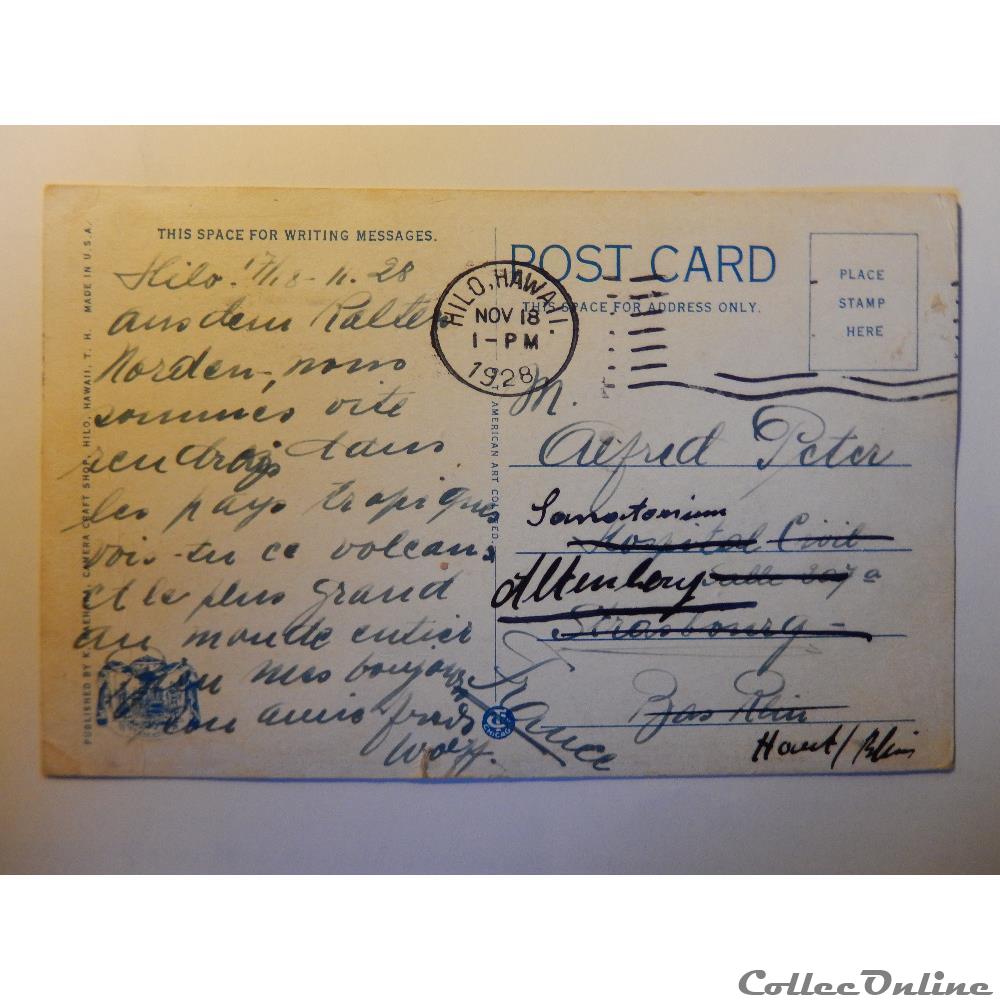 THIS SPACE FOR WRITING MESSAGES.
Hilo. 17/18-11.28
aus dem Kalten
Norden, nous
sommes vite
rendrois dans
les pays tropiques
vois-tu ce volcan
et le plus grand
au monde entier
mes bonjours
ton amis fred
Wolff.
PUBLISHED BY K. CAMERA CRAFT SHOP, HILO, HAWAII, T. H. MADE IN U.S.A.
AMERICAN ART COLORED.
CHICAGO
POST CARD
THIS SPACE FOR ADDRESS ONLY.
PLACE
STAMP
HERE
HILO, HAWAII.
NOV 18
1-PM
1928
M.
Alfred Peter
Sanatorium
Hopital Civil
Altenberg Salle 207a
Strasbourg
France
Bas Rhin
Haut/Rhin
CollecOnline